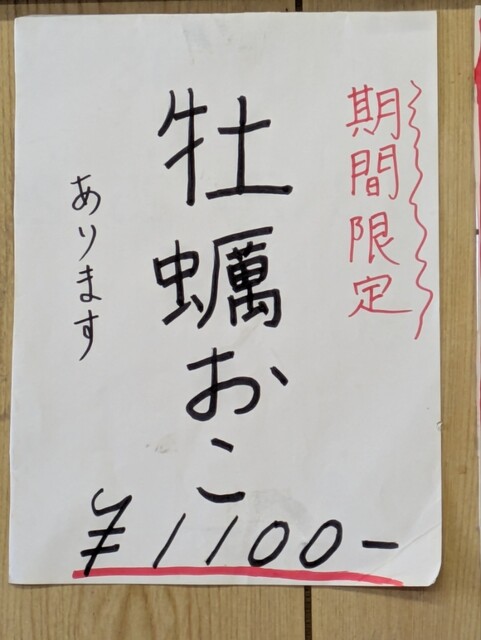 期間限定
牡蠣おこ
あります
¥1100-